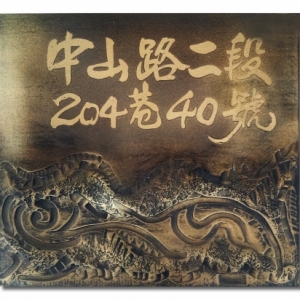 中山路二段
204巷40號